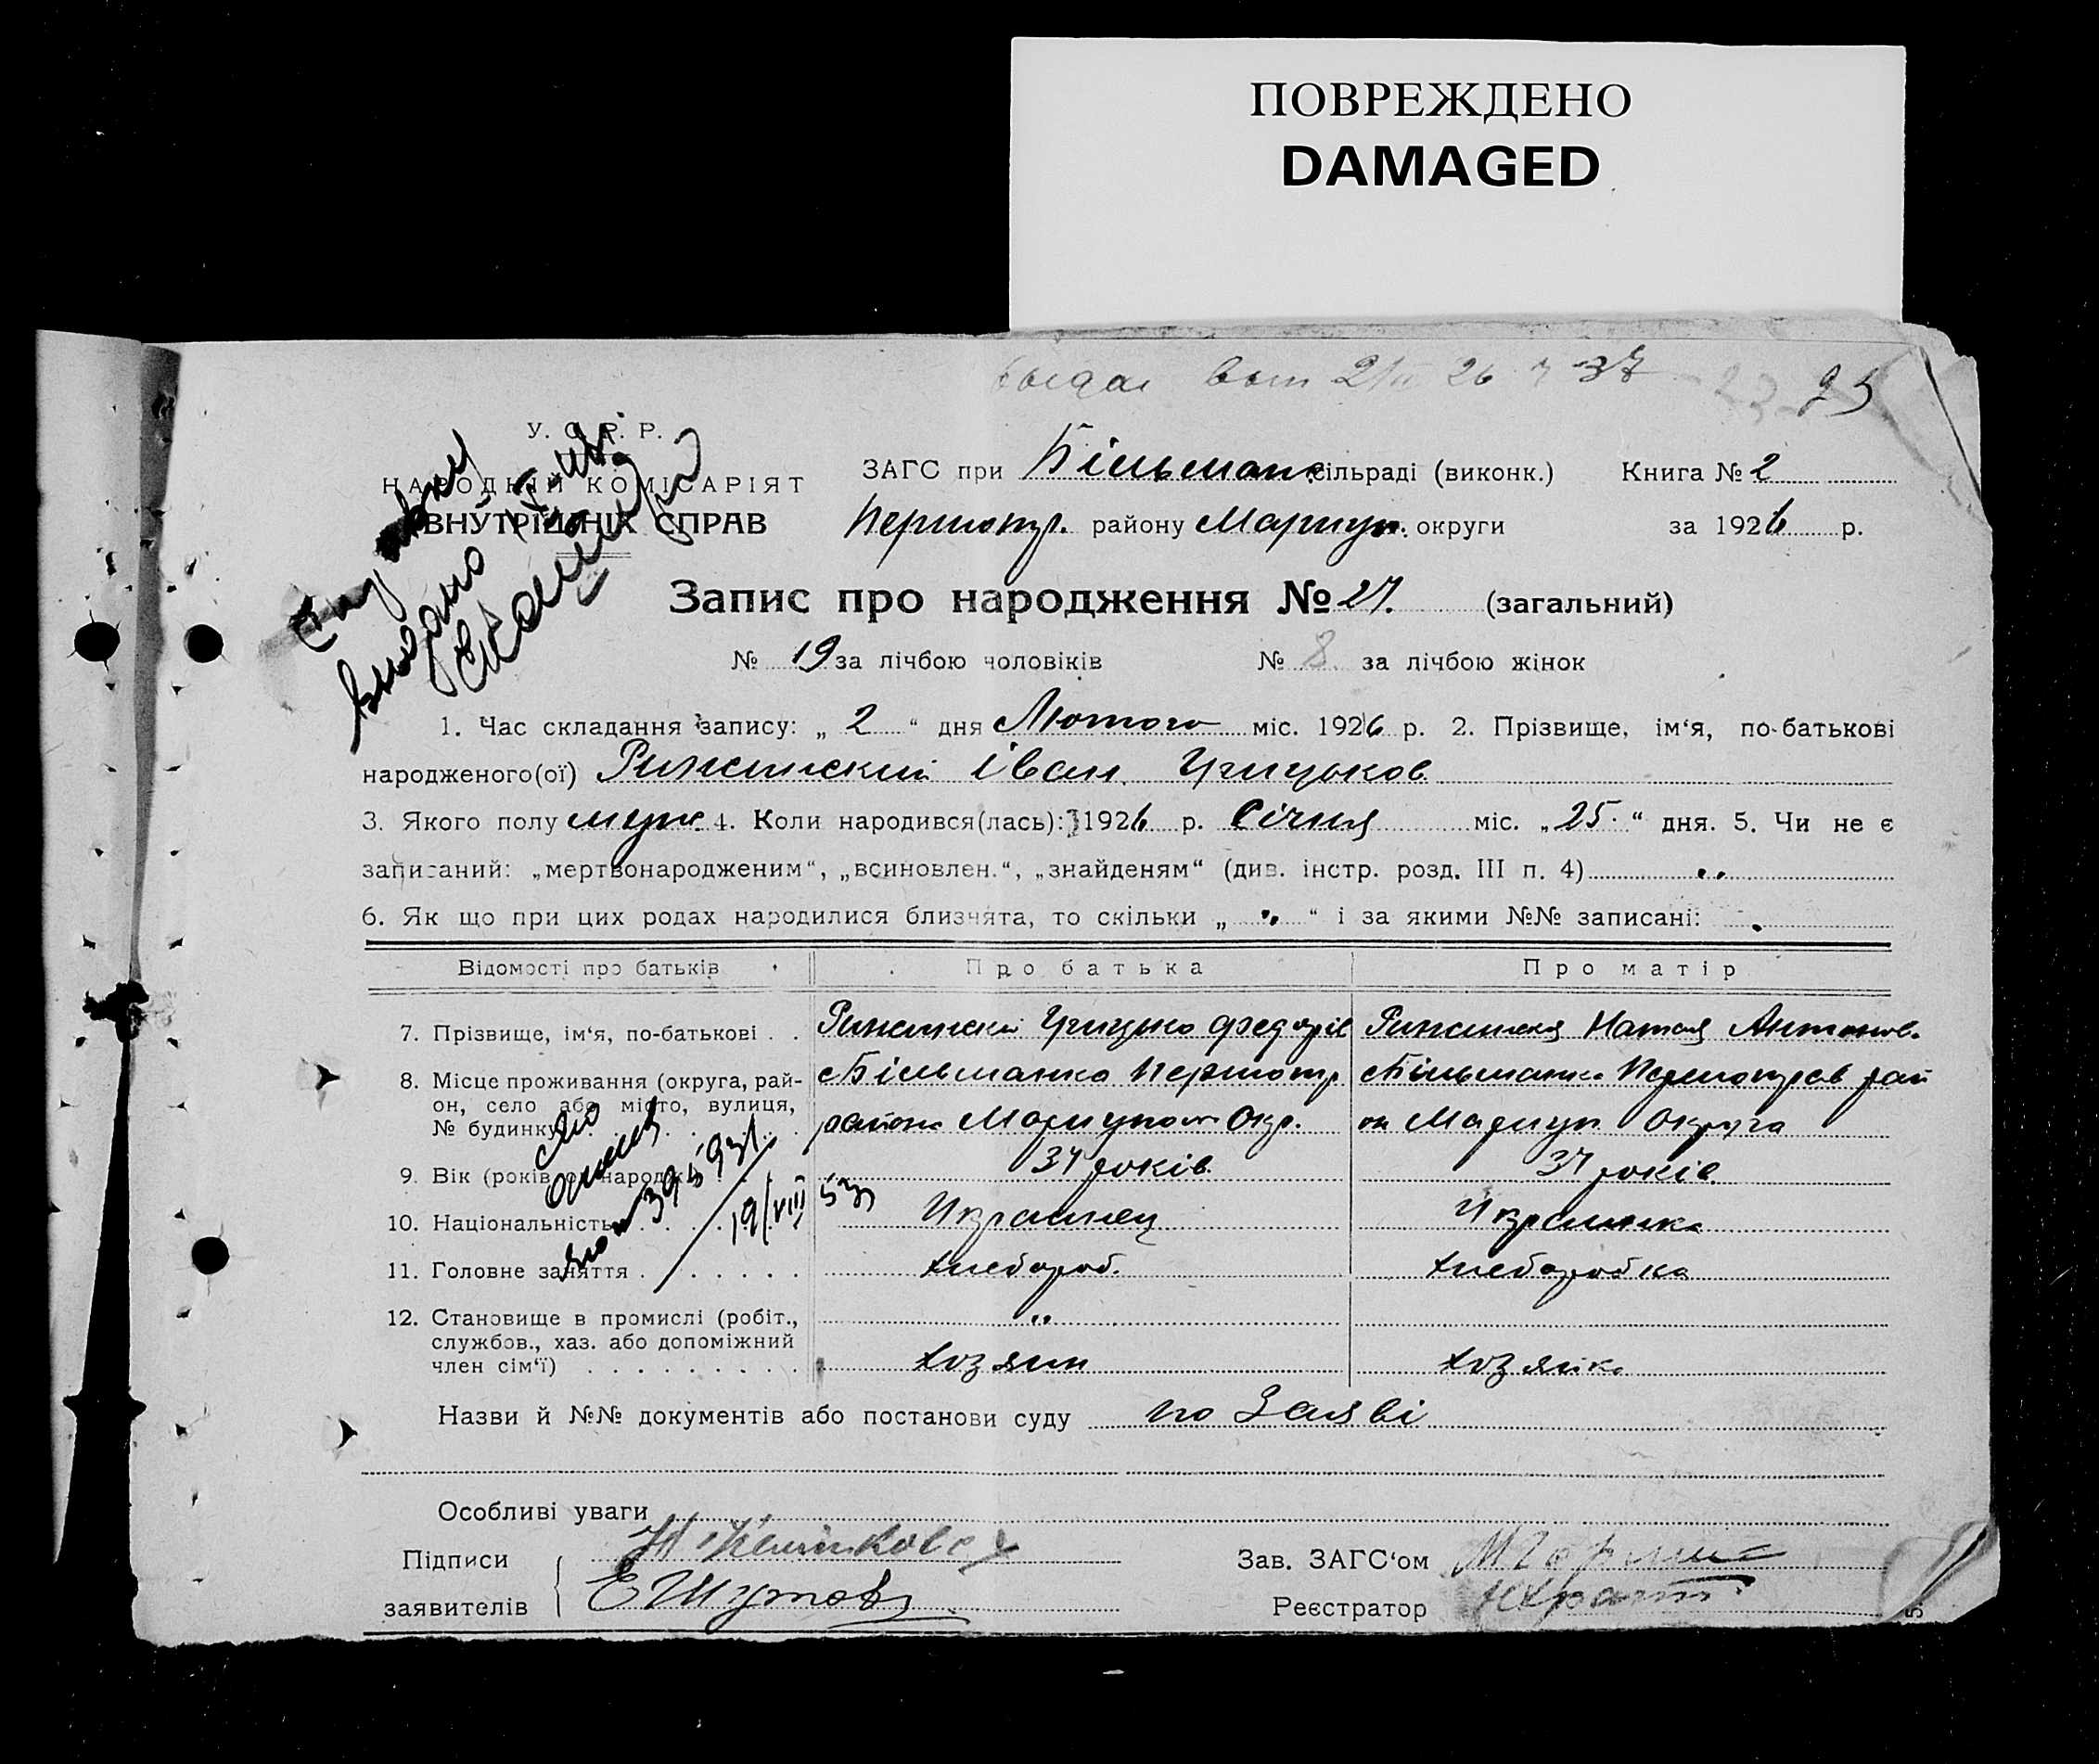 ПОВРЕЖДЕНО
DAMAGED
25
У. С. Р. Р.
НАРОДНІЙ КОМІСАРІЯТ
ВНУТРІШНІХ СПРАВ
ЗАГС при Більман. сільраді (виконк.) Книга № 2
Першотр. району Маріуп. округи за 1926 р.
Запис про народження № 27. (загальний)
№ 19 за лічбою чоловіків № 8 за лічбою жінок
1. Час складання запису: „ 2 “ дня Лютого міс. 1926 р. 2. Прізвище, ім‘я, по-батькові
народженого(ої) Іван Грицьков
3. Якого полу муж. 4. Коли народився(лась): 1926 р. Січня міс. „ 25. “ дня. 5. Чи не є
записаний: „мертвонародженим“, „всиновлен.“, „знайденям“ (див. інстр. розд. III п. 4)
6. Як що при цих родах народилися близнята, то скільки „ “ і за якими №№ записані:
Відомості про батьків Про батька Про матір
7. Прізвище, ім‘я, по-батькові . . Грицько Федорів Антонов.
8. Місце проживання (округа, рай-
он, село або місто, вулиця,
№ будинку)
с Більманка Першотр
района Мариупол Окр.
с Більманка рай
он Мариуп Округа
9. Вік (років від народж.) 34 років 37 років
10. Національність Украинец Украинка
19/VIII 53
11. Головне заняття . . . . . . хлебороб. хлеборобка
12. Становище в промислі (робіт.,
службов., хаз. або допоміжний
член сім‘ї) . . . . . . . . . хозяин хозяйка
Назви й №№ документів або постанови суду по Заяві
Особливі уваги
Підписи
заявителів
Зав. ЗАГС‘ом
Реєстратор